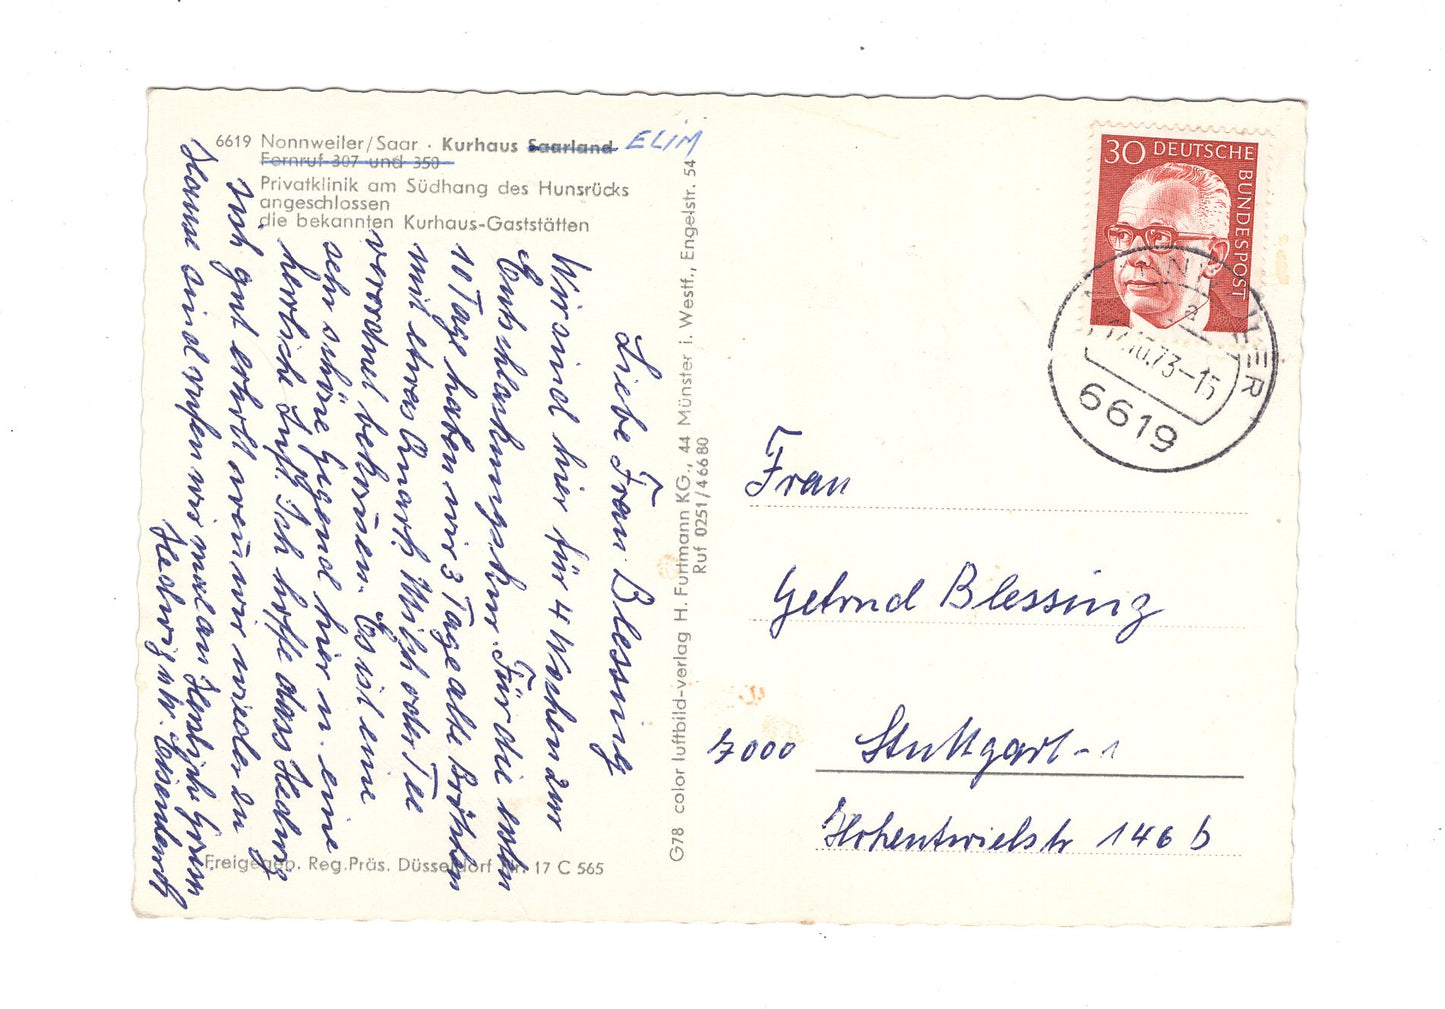 6619 Nonnweiler/Saar · Kurhaus Saarland ELIM
Fernruf 307 und 350
Privatklinik am Südhang des Hunsrücks
angeschlossen
die bekannten Kurhaus-Gaststätten
Liebe Frau Blessing
Wir sind hier für 4 Wochen zur
Entschlackungskur. Für die ersten
10 Tage haben wir 3 Tage alte Brötchen
mit etwas Quark Milch oder Tee
verordnet bekomen. Es ist eine
sehr schöne Gegend hier u. eine
herrliche Luft. Ich hoffe dass Hedwig
sich gut erholt wenn wir wieder zu
Hause sind rufen wir mal an Herzliche Grüsse
Hedwig u W.
Freigegeb. Reg.Präs. Düsseldorf Nr. 17 C 565
G78 color luftbild-verlag H. Furtmann KG., 44 Münster i. Westf., Engelstr. 54
Ruf 0251/46680
30 DEUTSCHE
BUNDESPOST
NONNWEILER
a
17.10.73-15
6619
Frau
Getrud Blessing
7000 Stuttgart-1
Hohentwielstr 146 b